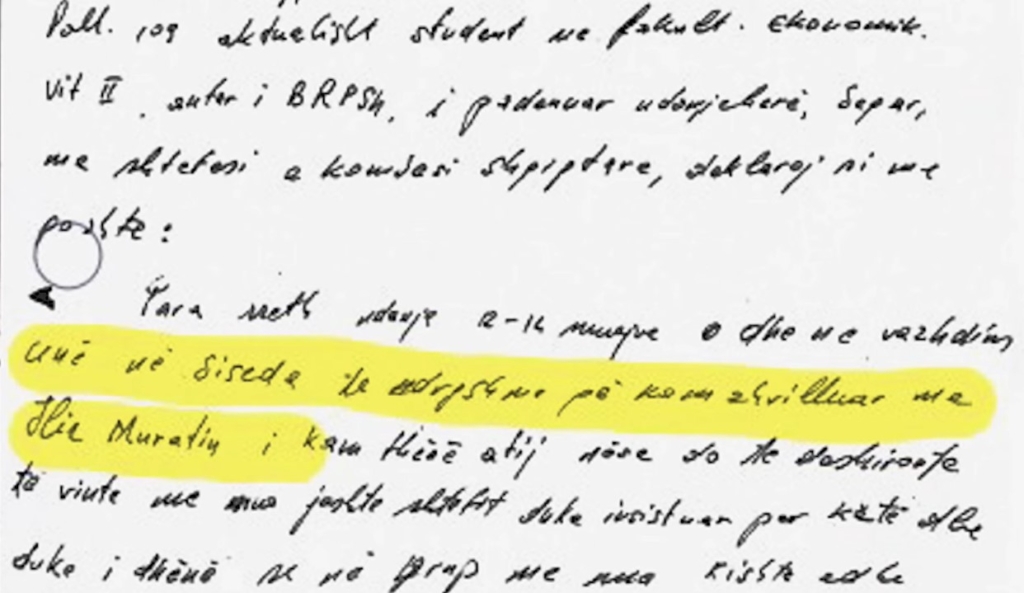 Pall. 109 aktualisht student ne fakult. ekonomik.
vit II, antar i BRPSh, i padenuar ndonjeherë, beqar,
me shtetesi e kombesi shqiptare, deklaroj si me
poshte:
Para rreth ndonje 12-14 muajve e dhe ne vazhdim
unë në biseda te ndryshme që kam zhvilluar me
Ilir Muratin i kam thënë atij nëse do te deshironte
të vinte me mua jashte shtetit duke insistuar per këtë dhe
duke i dhënë se në grup me mua kishte edhe